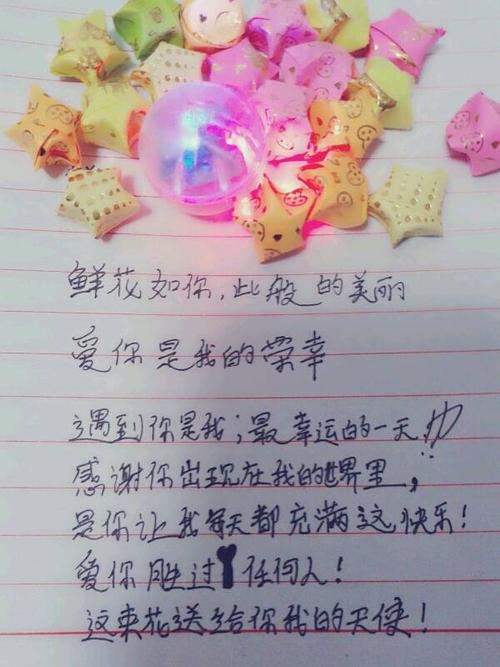 鲜花如你,此般的美丽
爱你是我的荣幸
遇到你是我;最幸运的一天
感谢你出现在我的世界里,
是你让我每天都充满这快乐!
爱你胜过任何人!
这束花送给你我的天使!